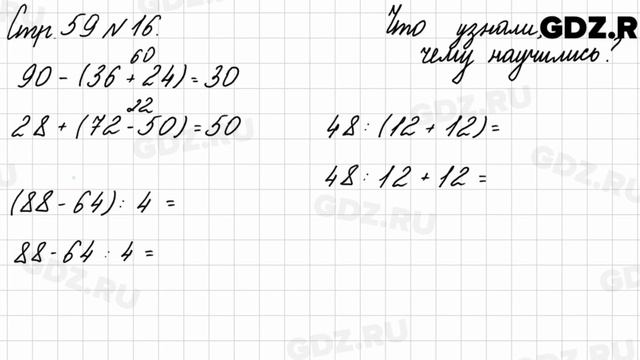 Стр. 59 N 16.
Что узнали,
чему научились?
GDZ.R
60
90 - (36 + 24) = 30
22
28 + (72 - 50) = 50
(88 - 64) : 4 =
88 - 64 : 4 =
48 : (12 + 12) =
48 : 12 + 12 =
GDZ.RU
GDZ.RU
GDZ.RU
GDZ.RU
GDZ.RU
GDZ.RU